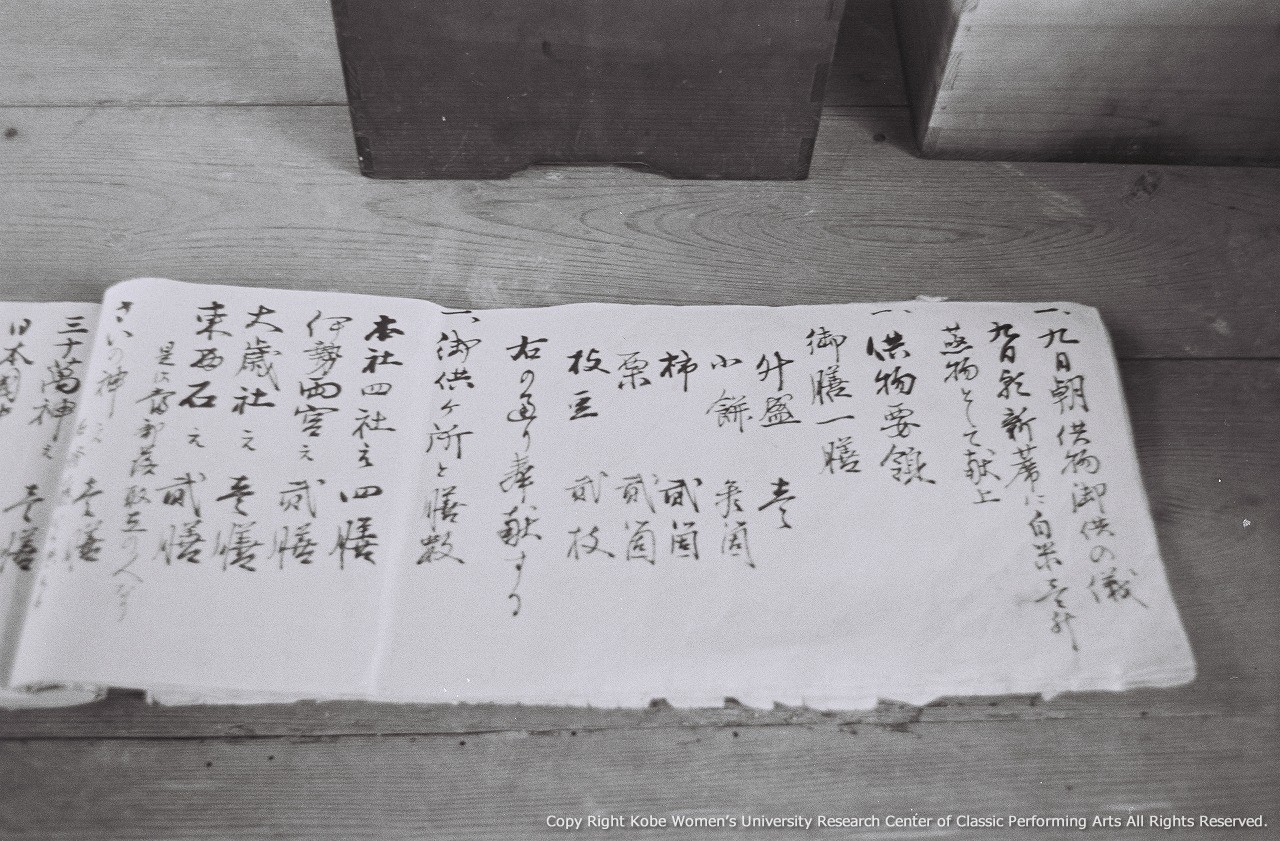 一、九日朝供物御供の儀
九日朝新藁に白米壱升
蒸物として献上
一、供物要領
御膳一膳
升盛 壱
小餅 箇
柿 貮箇
栗 貮箇
枝豆 貮枝
右の通り奉献する
一、御供ヶ所と膳数
本社四社え 四膳
伊勢西宮え 貮膳
大歳社え 壱膳
東西石え 貮膳
是は部落取立の人
さいの神え 壱膳
三十萬神え
日本國 壱膳
Copy Right Kobe Women's University Research Center of Classic Performing Arts All Rights Reserved.